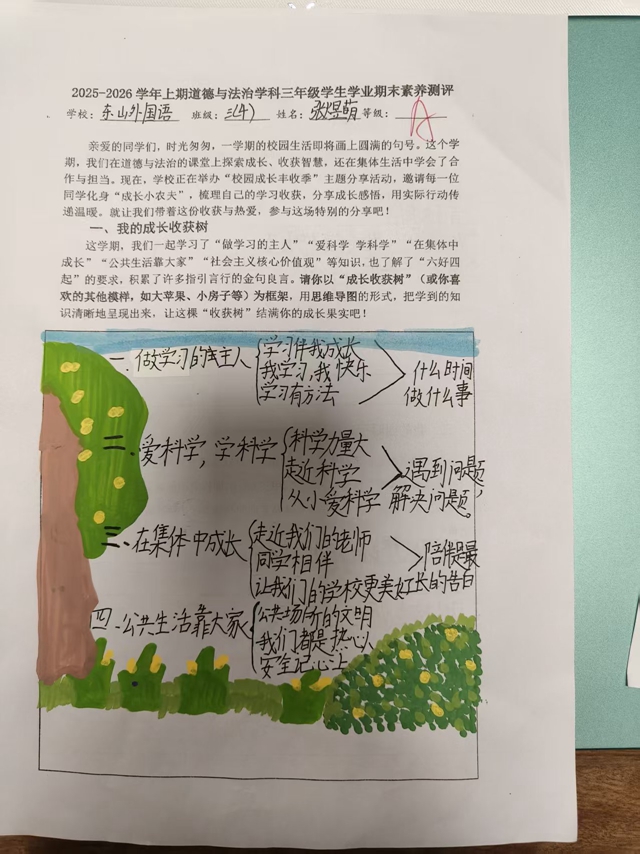 2025-2026 学年上期道德与法治学科三年级学生学业期末素养测评
学校：东山外国语 班级：三(4) 姓名：张煜萌 等级：A
亲爱的同学们，时光匆匆，一学期的校园生活即将画上圆满的句号。这个学
期，我们在道德与法治的课堂上探索成长、收获智慧，还在集体生活中学会了合
作与担当。现在，学校正在举办“校园成长丰收季”主题分享活动，邀请每一位
同学化身“成长小农夫”，梳理自己的学习收获，分享成长感悟，用实际行动传
递温暖。就让我们带着这份收获与热爱，参与这场特别的分享吧！
一、我的成长收获树
这学期，我们一起学习了“做学习的主人”“爱科学 学科学”“在集体中
成长”“公共生活靠大家”“社会主义核心价值观”等知识，也了解了“六好四
起”的要求，积累了许多指引言行的金句良言。请你以“成长收获树”（或你喜
欢的其他模样，如大苹果、小房子等）为框架，用思维导图的形式，把学到的知
识清晰地呈现出来，让这棵“收获树”结满你的成长果实吧！
一、做学习的主人
学习伴我成长
我学习，我快乐
学习有方法
什么时间
做什么事
二、爱科学，学科学
科学力量大
走近科学
从小爱科学
遇到问题，
解决问题。
三、在集体中成长
走近我们的老师
同学相伴
让我们的学校更美好
陪伴是最
长的告白
四、公共生活靠大家
公共场所的文明
我们都是热心人
安全记心上